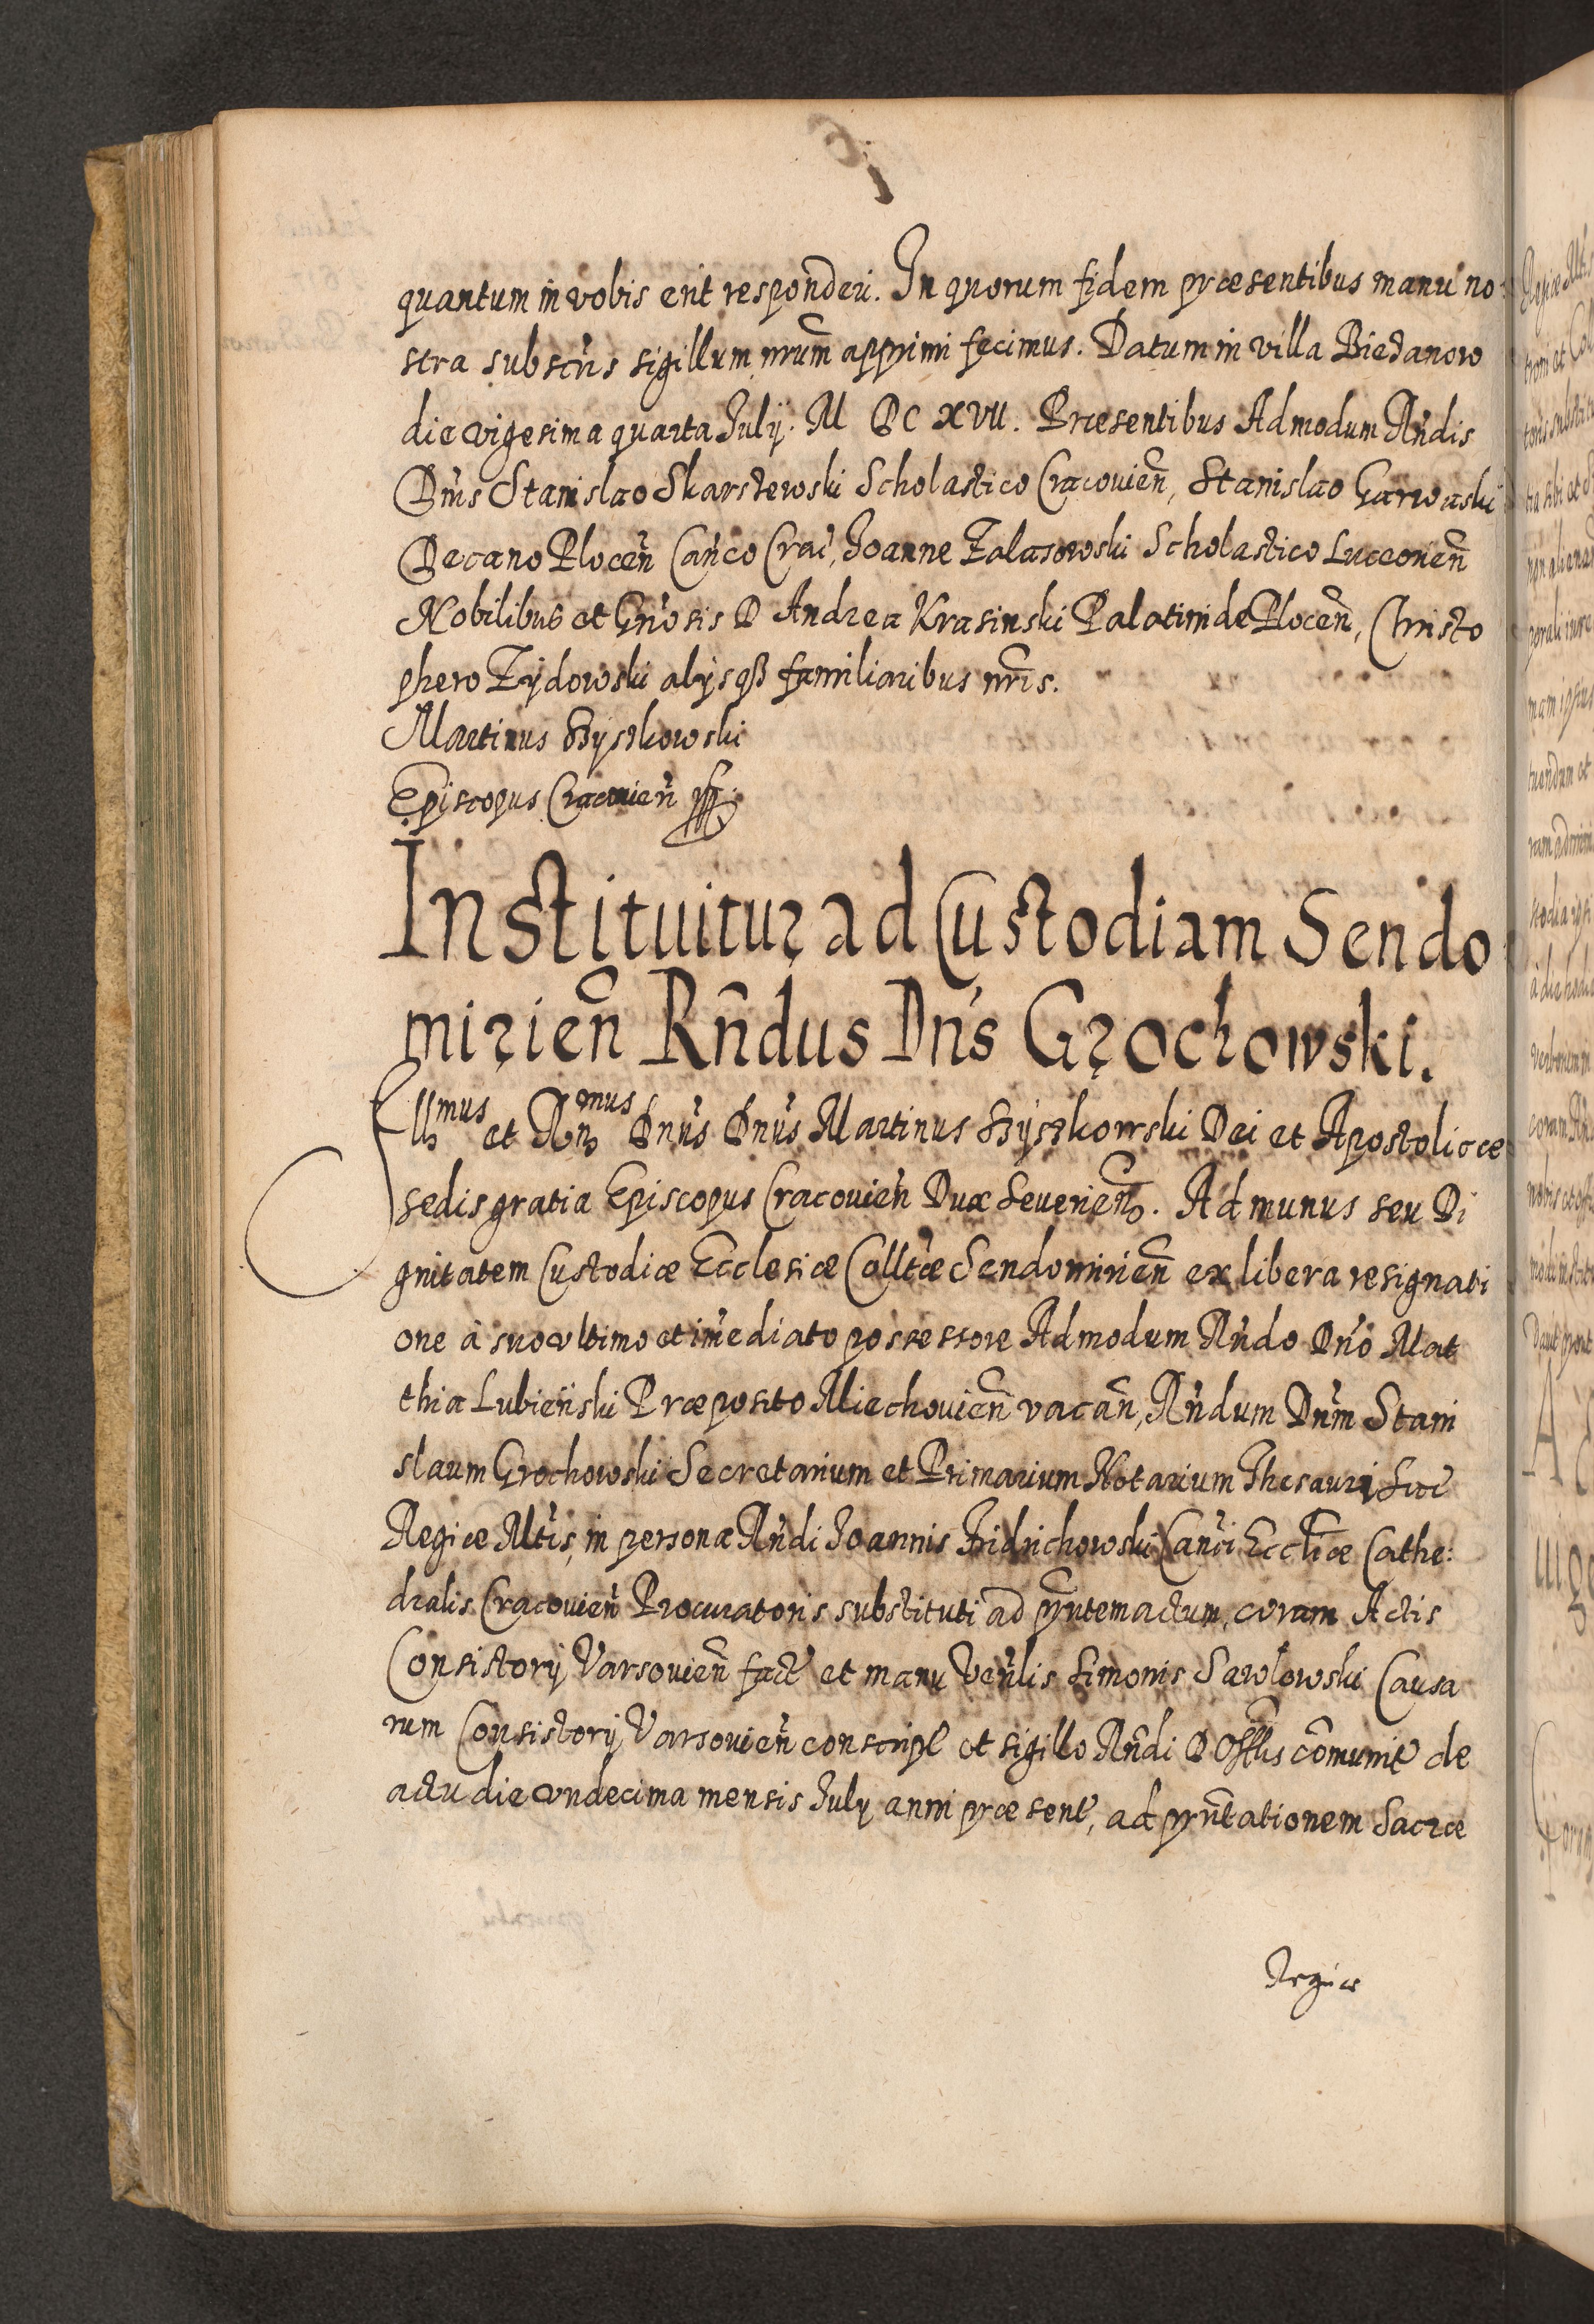 quantum in vobis erit responderi. In quorum fidem præsentibus manu no
stra subscris sigillum nrum apprimi fecimus. Datum in villa Biedanow
die vigesima quarta Julij. M DC XVII. Præsentibus Admodum Rndis
Dnis Stanislao Skarszewski Scholastico Cracovien, Stanislao Garwaski
Decano Plocen Canco Crac, Joanne Zalasowski Scholastico Luceorien
Nobilibus et Gnosis D Andrea Krasinski Palatinide Plocen, Christo
phero Zÿdowski alijsqß familiaribus nris.
Martinus Szÿszkowski
Episcopus Cracovien
Instituitur ad Custodiam Sendo
mirien Rndus Dns Grochowski.
Illmus et Rnmus Dnus Dnus Martinus Szÿszkowski Dei et Apostolicæ
sedis gratia Episcopus Cracovien Dux Severien. Ad munus seu Di
gnitatem Custodiæ Ecclesiæ Colltæ Sendomirien ex libera resignati
one à suo ultimo et imediato possessore Admodum Rndo Dno Mat
thia Lubieński Præposito Miechovien vacan, Rndum Dnm Stani
slaum Grochowski Secretarium et Primarium Notarium Thesauri Sac
Regiæ Mtis, in persona Rndi Joannis Fridrichowski Canci Eccliæ Cathe:
dralis Cracovien Procuratoris substituti ad pntem actum, coram Actis
Consistorij Varsovien fact et manu Venlis Simonis Sawlowski Causa
rum Consistorij Varsovien conscript et sigillo Rndi D Offlis comunit de
actu die undecima mensis July anni præsent, ad pntationem Sacræ
Regiæ